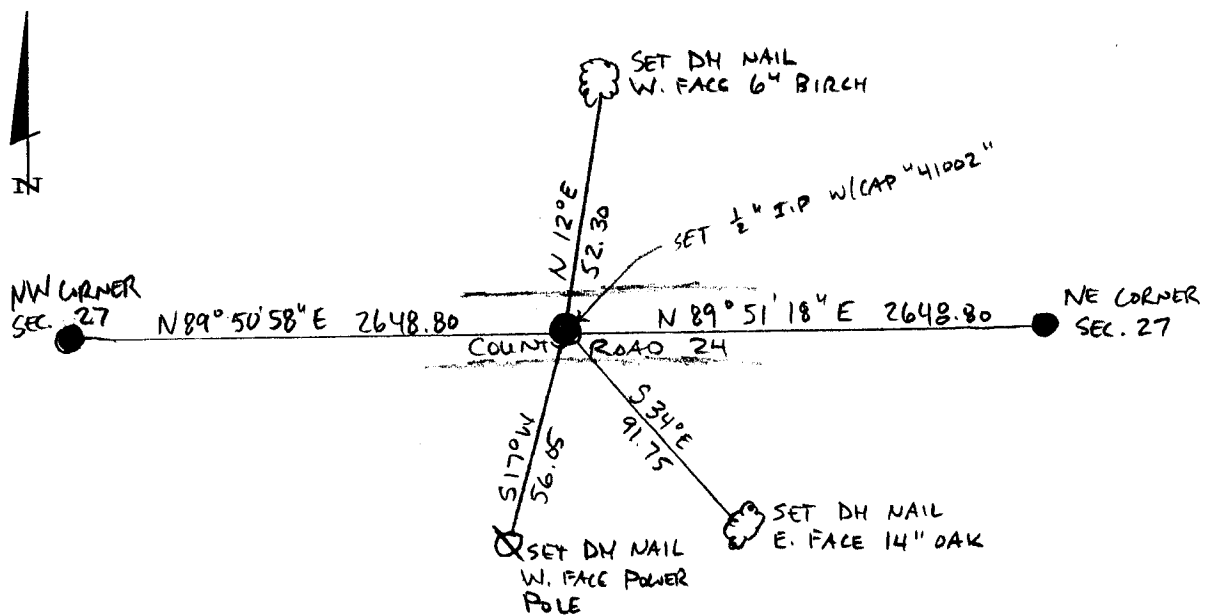 SET DH NAIL
W. FACE 6" BIRCH
N
N 12°E
52.30
SET 1/2" I.P W/CAP "41002"
NW CORNER
SEC. 27
N 89° 50' 58" E 2648.80
N 89° 51' 18" E 2648.80
NE CORNER
SEC. 27
COUNTY ROAD 24
S 17° W
56.05
S 34° E
91.75
SET DH NAIL
E. FACE 14" OAK
SET DH NAIL
W. FACE POWER
POLE